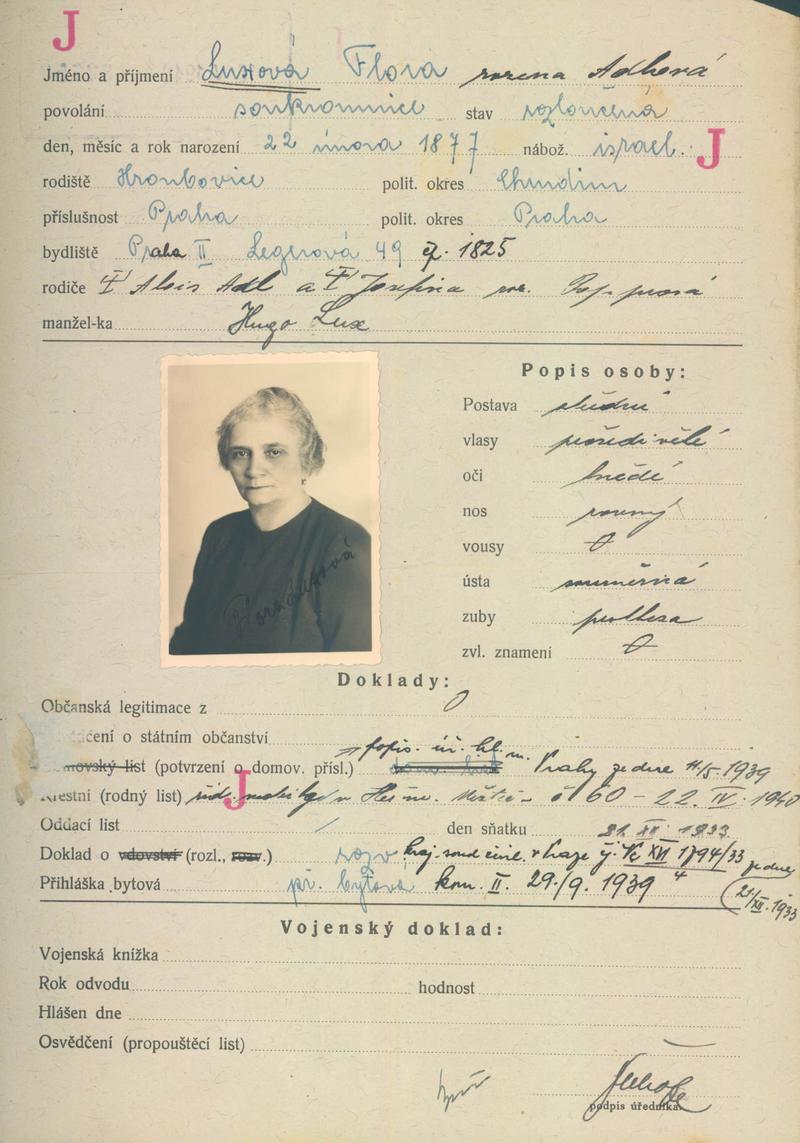 J
Jméno a příjmení Luxová Flora rozená Adlová
povolání soukromnice stav rozloučená
den, měsíc a rok narození 22 února 1877 nábož. israel. J
rodiště Hroubovice polit. okres Chrudim
příslušnost Praha polit. okres Praha
bydliště Praha II Legerová 49 čp. 1825
rodiče Alois Adl a Josefina roz. Popprová
manžel-ka Hugo Lux
Popis osoby:
Postava střední
vlasy prošedivělé
oči hnědé
nos rovný
vousy 0
ústa souměrná
zuby prothesa
zvl. znamení 0
Flora Luxová
Doklady:
Občanská legitimace z 0
čení o státním občanství
popis. úř. hl. m.
movský list (potvrzení o domov. přísl.) Prahy ze dne 11/5. 1939
J
křestní (rodný list) v Heř. Městci č 60 - 22. IV. 1940
Oddací list / den sňatku
Doklad o vdovství (rozl., rozv.) rozv kraj soud civil. v Praze čj. XVI 1794/33 ze dne
Přihláška bytová př. bytová kom. II. 29./9. 1939 21/XII. 1933
Vojenský doklad:
Vojenská knížka
Rok odvodu hodnost
Hlášen dne
Osvědčení (propouštěcí list)
podpis úředníka.